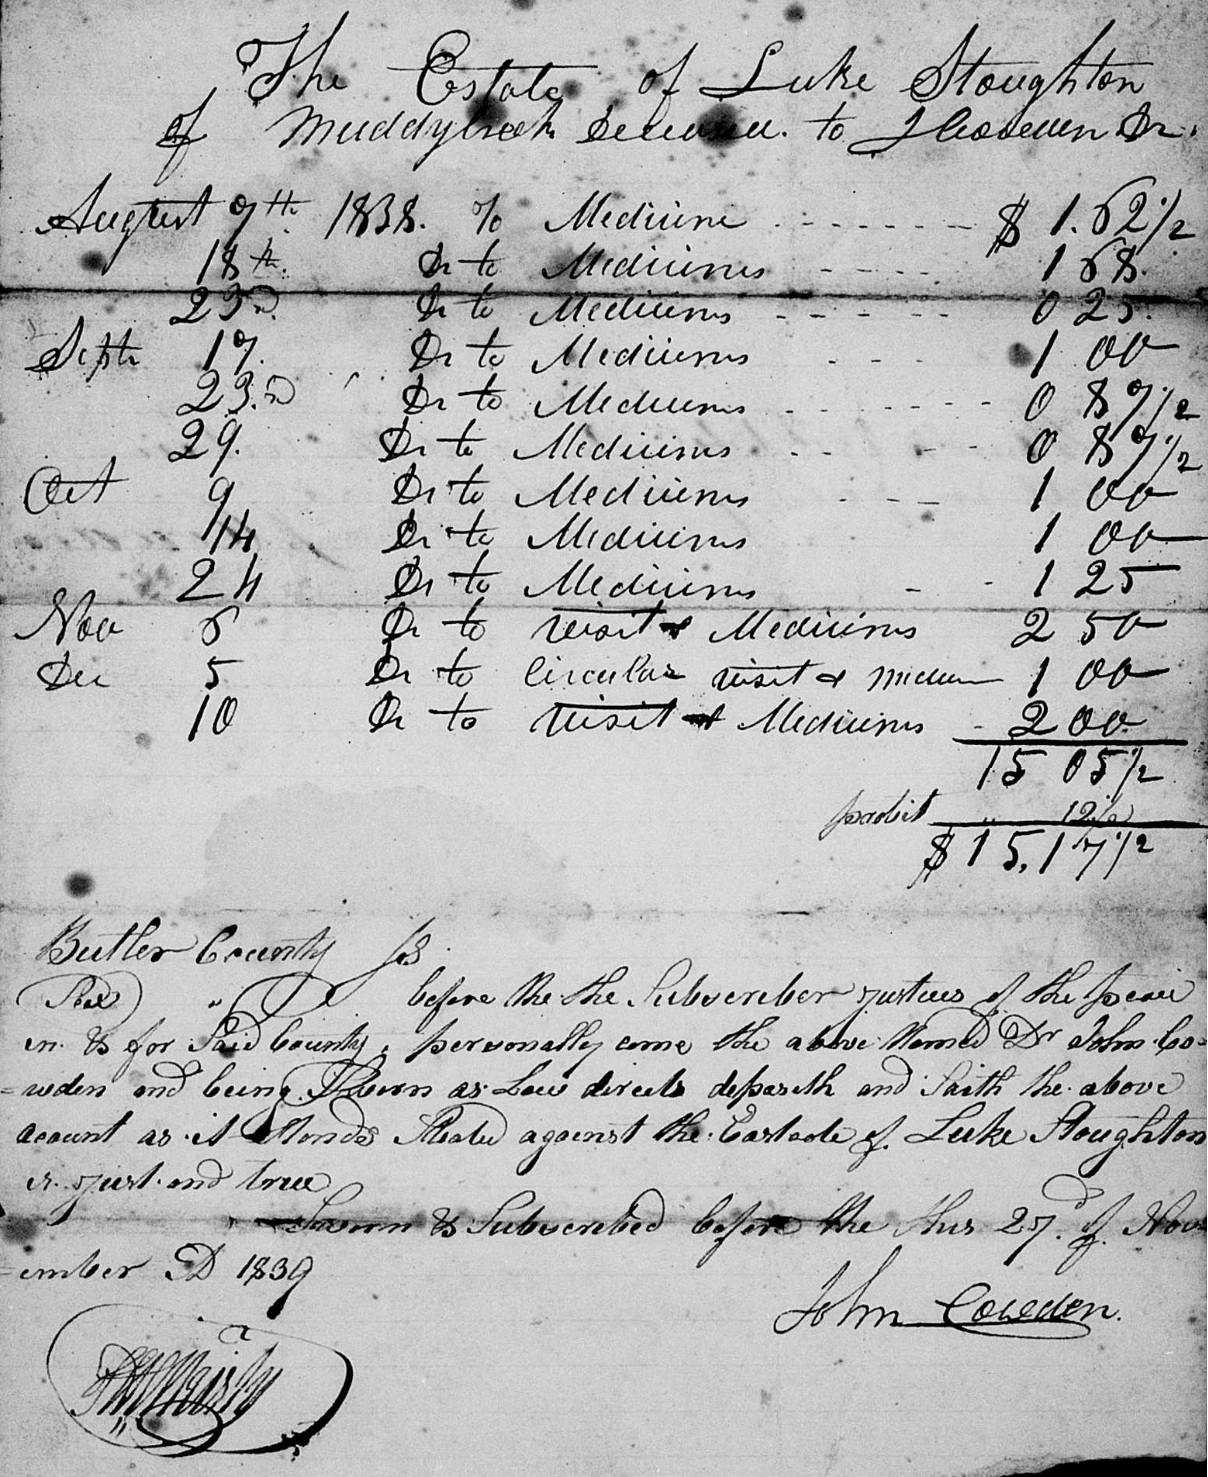 The Estate of Luke Stoughton
of Muddycreek Deceased. to J Cowden Dr.
August 7th 1838. To Medicine $ 1.62 1/2
18th. Dr to Medicines 1 68.
23rd. Dr to Medicines 0 25.
Sept 17. Dr to Medicines 1 00
23.rd Dr to Medicines 0 87 1/2
29. Dr to Medicines 0 87 1/2
Oct 9 Dr to Medicines 1 00
14 Dr to Medicines 1 00
24 Dr to Medicines 1 25
Nov 6 Dr to visit & Medicines 2 50
Dec 5 Dr to Circular visit & Medicin 1 00
10 Dr to visit & Medicines 2 00
15 05 1/2
probit " 12 1/2
$ 15.17 1/2
Butler County ss
before the the Subscriber justices of the peace
in & for Said County, personally came the above Named Dr John Co=
=wden and being Sworn as Law directs deposeth and Saith the above
acount as it Stands Stated against the Eastate of Luke Stoughton
is just and true
Sworn & Subscribed before the this 27d of Nov=
=ember AD 1839
John Cowden.